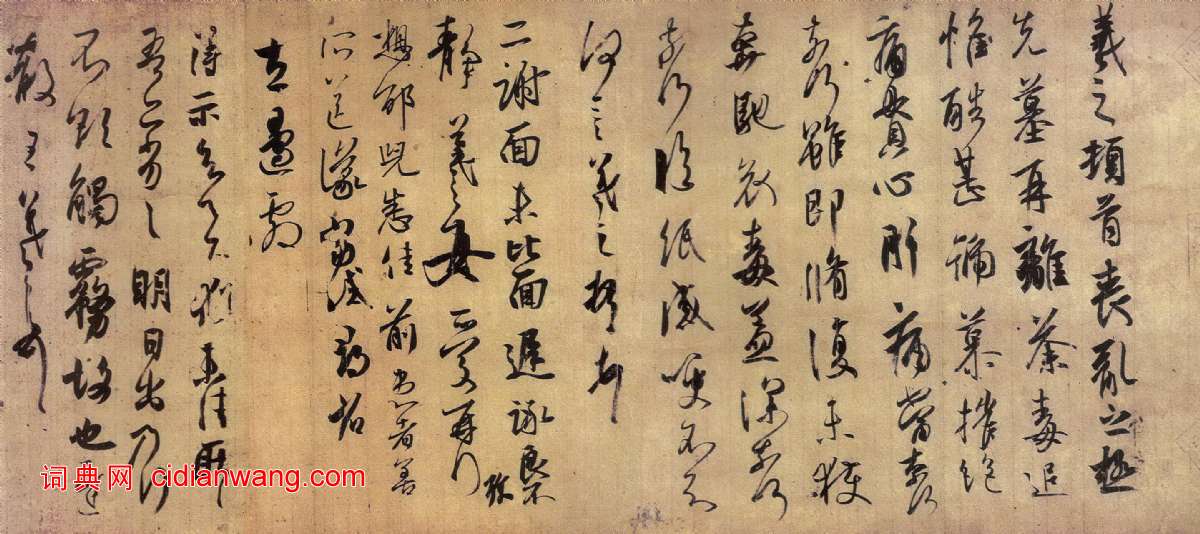 羲之頓首喪亂之極
先墓再離荼毒追
惟酷甚號慕摧絕
痛貫心肝痛當奈何
奈何雖即脩復未獲
奔馳哀毒益深奈何
奈何臨紙感哽不知
何言羲之頓首
二謝面未比面遲詠良不
靜羲之女愛再拜
想邰兒悉佳前患者善
所送議當試尋省
左邊劇
得示知足下猶未佳耿耿
吾亦劣劣明日出乃行
不欲觸霧故也遲
散王羲之頓首
词典网 cidianwang.com